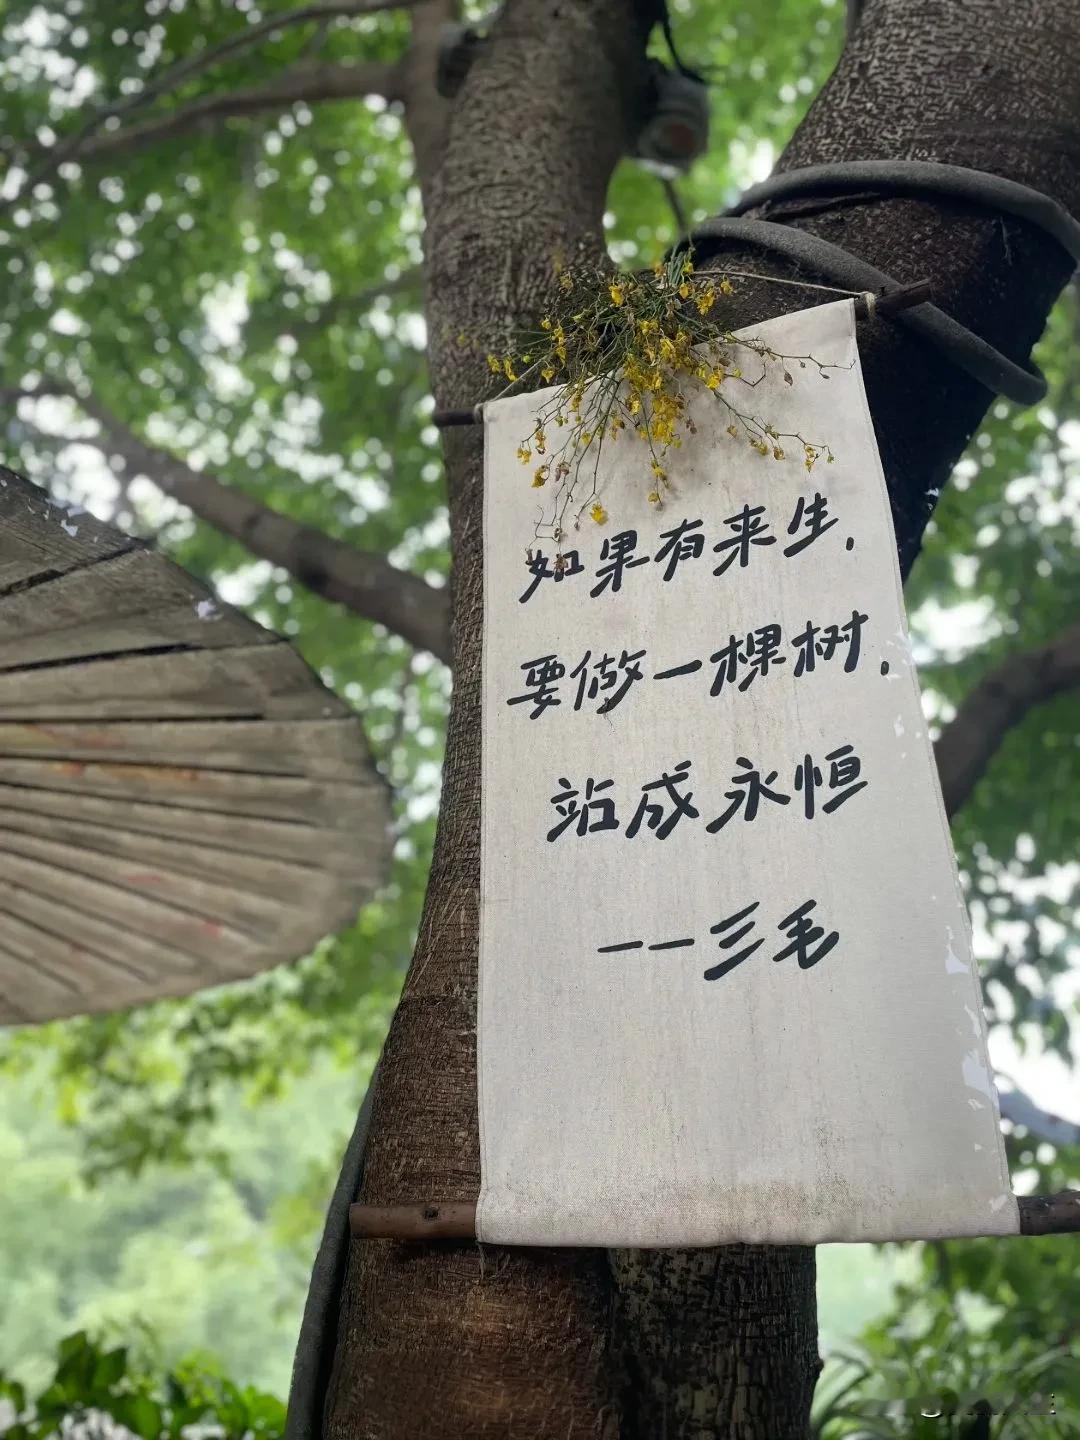 如果有来生.
要做一棵树.
站成永恒
——三毛